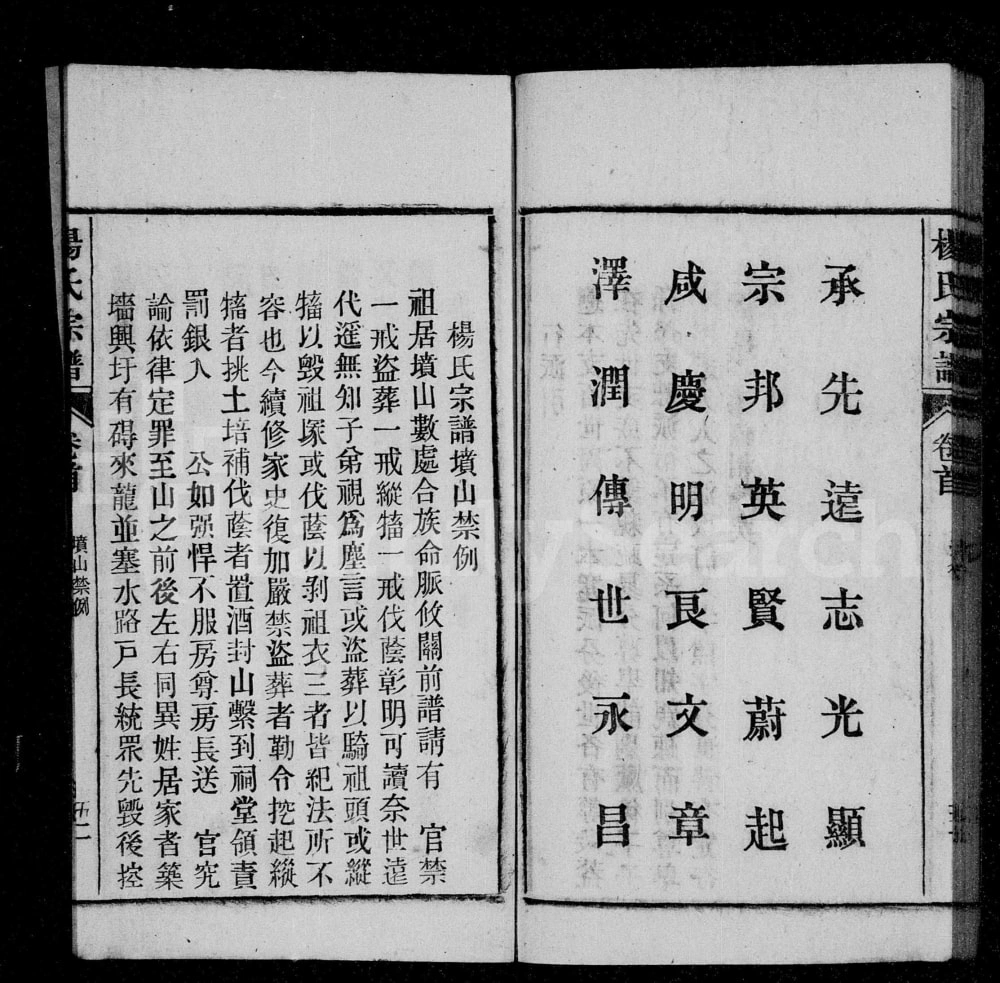 楊氏宗譜
卷首
承先遠志光顯
宗邦英賢蔚起
咸慶明艮文章
澤潤傳世永昌
楊氏宗譜墳山禁例
祖居墳山數處合族命脈攸關前譜請有 官禁
一戒盜葬一戒縱犓一戒伐蔭彰明可讀奈世遠
代遙無知子弟視爲塵言或盜葬以騎祖頭或縱
犓以毀祖塚或伐蔭以剝祖衣三者皆紀法所不
容也今續修家史復加嚴禁盜葬者勒令挖起縱
犓者挑土培補伐蔭者置酒封山繫到祠堂領責
罰銀入 公如强悍不服房尊房長送 官究
論依律定罪至山之前後左右同異姓居家者築
墻興圩有碍來龍並塞水路戶長統眾先毀後控
楊氏宗譜
卷首
墳山禁例